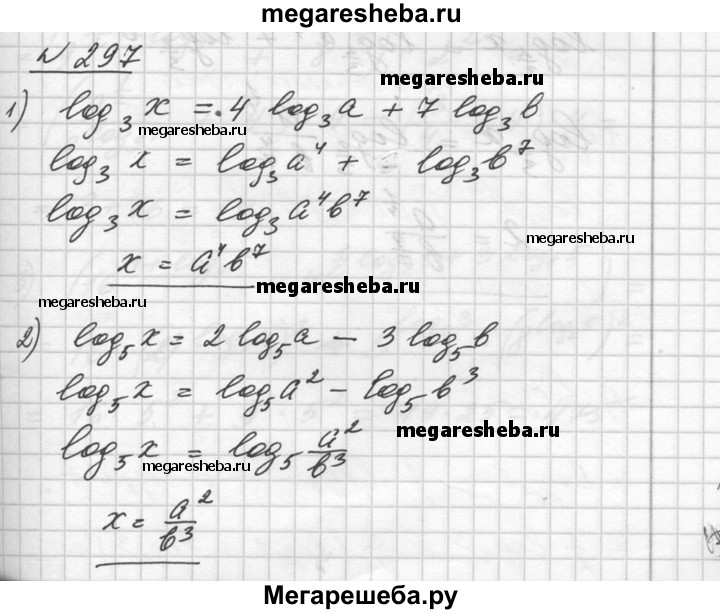 megaresheba.ru
№ 297
megaresheba.ru
1) log₃ x = 4 log₃ a + 7 log₃ b
megaresheba.ru
log₃ x = log₃ a⁴ + log₃ b⁷
log₃ x = log₃ a⁴b⁷
megaresheba.ru
x = a⁴b⁷
megaresheba.ru
megaresheba.ru
2) log₅ x = 2 log₅ a − 3 log₅ b
log₅ x = log₅ a² − log₅ b³
megaresheba.ru
log₅ x = log₅ a²/b³
megaresheba.ru
x = a²/b³
Мегарешеба.ру